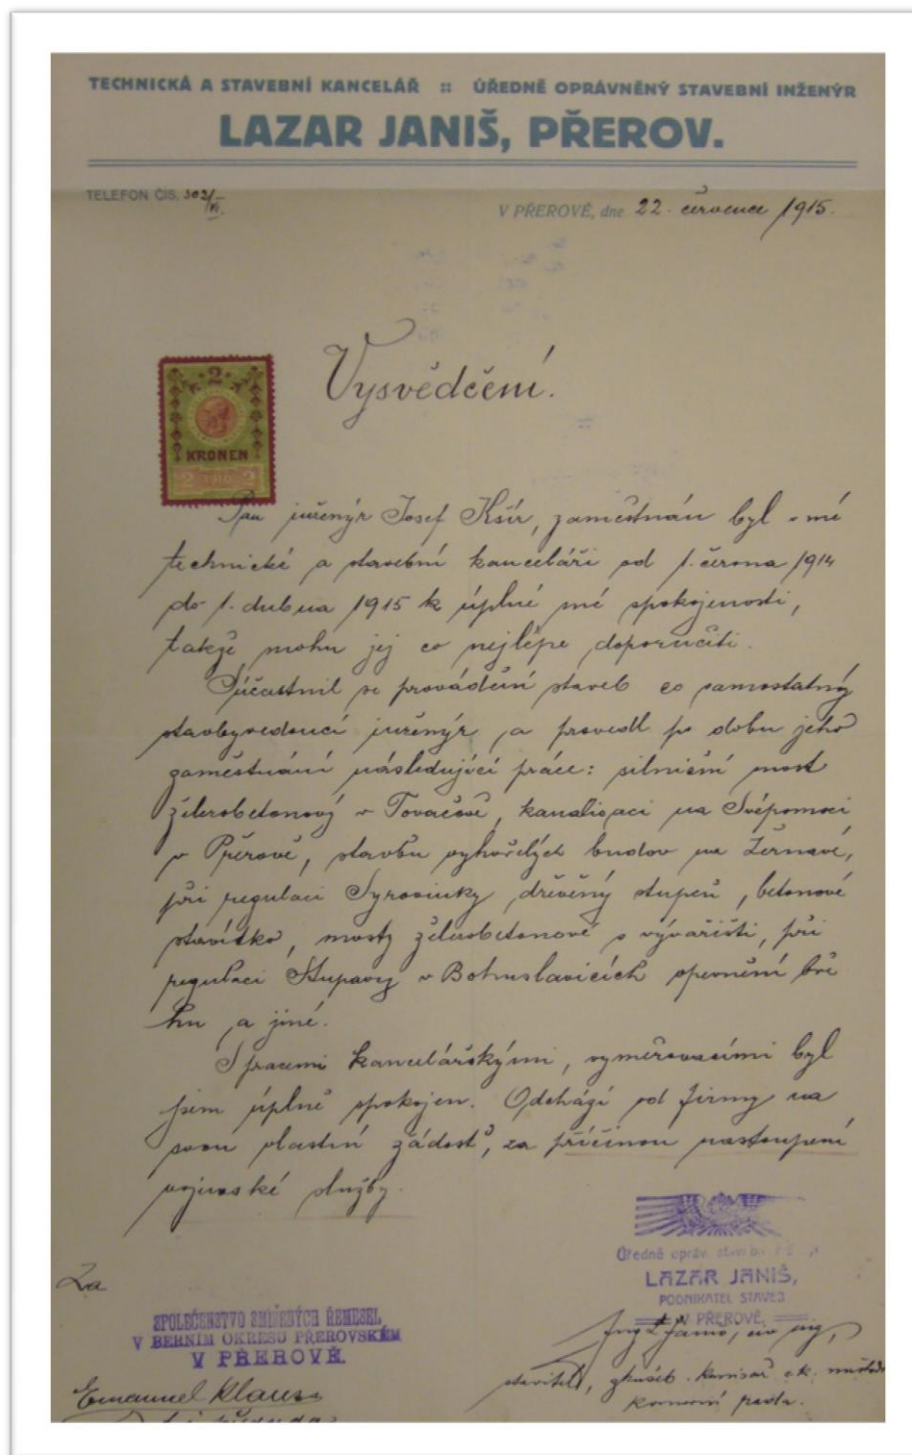 TECHNICKÁ A STAVEBNÍ KANCELÁŘ :: ÚŘEDNĚ OPRÁVNĚNÝ STAVEBNÍ INŽENÝR
LAZAR JANIŠ, PŘEROV.
TELEFON ČÍS. 302/VI.
V PŘEROVĚ, dne 22. července 1915.
Vysvědčení.
2
KRONEN
2 1910 2
Pan inženýr Josef Kšír, zaměstnán byl v mé
technické a stavební kanceláři od 1. června 1914
do 1. dubna 1915 k úplné mé spokojenosti,
takže mohu jej co nejlépe doporučiti.
Súčastnil se provádění staveb co samostatný
stavbyvedoucí inženýr a provedl po dobu jeho
zaměstnání následující práce: silniční most
železobetonový v Tovačově, kanalisaci na Svépomoci
v Přerově, stavbu vyhořelých budov na Žernavé,
při regulaci Syrovinky dřevěný stupeň, betonové
stavítko, mosty železobetonové s vývařišti, při
regulaci Stupavy v Bohuslavicích zpevnění bře
hu a jiné.
S pracemi kancelářskými, vyměřovacími byl
jsem úplně spokojen. Odchází od firmy na
svou vlastní žádosť, za příčinou nastoupení
vojenské služby.
Úředně opráv. stavební
LAZAR JANIŠ,
PODNIKATEL STAVEB
V PŘEROVĚ,
Za
SPOLEČENSTVO SMÍŠENÝCH ŘEMESEL
V BERNÍM OKRESU PŘEROVSKÉM
V PŘEROVĚ.
Ing L Janiš,
stavitel, zkušeb. komisař c.k.
Emanuel Klauss